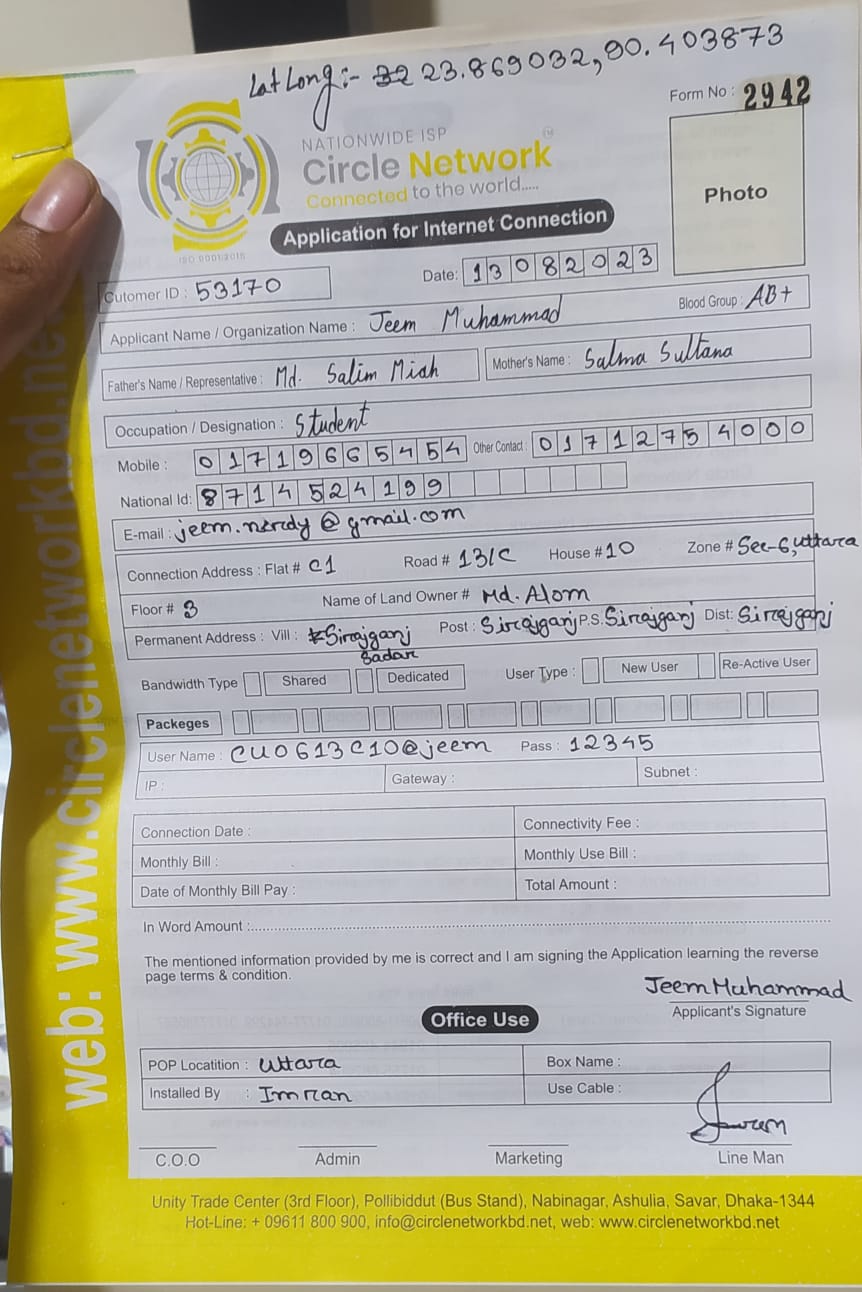 Lat Long:- 32 23.869032,90.403873
Form No : 2942
NATIONWIDE ISP
Circle Network
Connected to the world.....
ISO 9001:2015
Photo
Application for Internet Connection
Cutomer ID : 53170
Date: 13082023
Applicant Name / Organization Name : Jeem Muhammad Blood Group : AB+
Father's Name / Representative : Md. Salim Miah Mother's Name : Salma Sultana
Occupation / Designation : Student
Mobile : 01719665454 Other Contact : 01712754000
National Id: 8714524199
E-mail : jeem.nerdy@gmail.com
Connection Address : Flat # C1 Road # 13/C House # 10 Zone # Sec-6, Uttara
Floor # 3 Name of Land Owner # Md. Alom
Permanent Address : Vill : Sirajganj Sadar Post : Sirajganj P.S. Sirajganj Dist: Sirajganj
Bandwidth Type Shared Dedicated User Type : New User Re-Active User
Packeges
User Name : CU0613C10@jeem Pass : 12345
IP : Gateway : Subnet :
Connection Date : Connectivity Fee :
Monthly Bill : Monthly Use Bill :
Date of Monthly Bill Pay : Total Amount :
In Word Amount :
The mentioned information provided by me is correct and I am signing the Application learning the reverse
page terms & condition.
Jeem Muhammad
Applicant's Signature
Office Use
POP Locatition : Uttara Box Name :
Installed By : Imran Use Cable :
C.O.O Admin Marketing Line Man
Unity Trade Center (3rd Floor), Pollibiddut (Bus Stand), Nabinagar, Ashulia, Savar, Dhaka-1344
Hot-Line: + 09611 800 900, info@circlenetworkbd.net, web: www.circlenetworkbd.net
web: www.circlenetworkbd.net